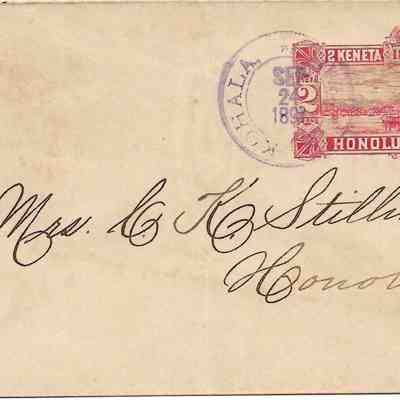 KOHALA
SEP
24
2 KENETA
2
HONOLU
Mrs. C. K. Stillm
Honol